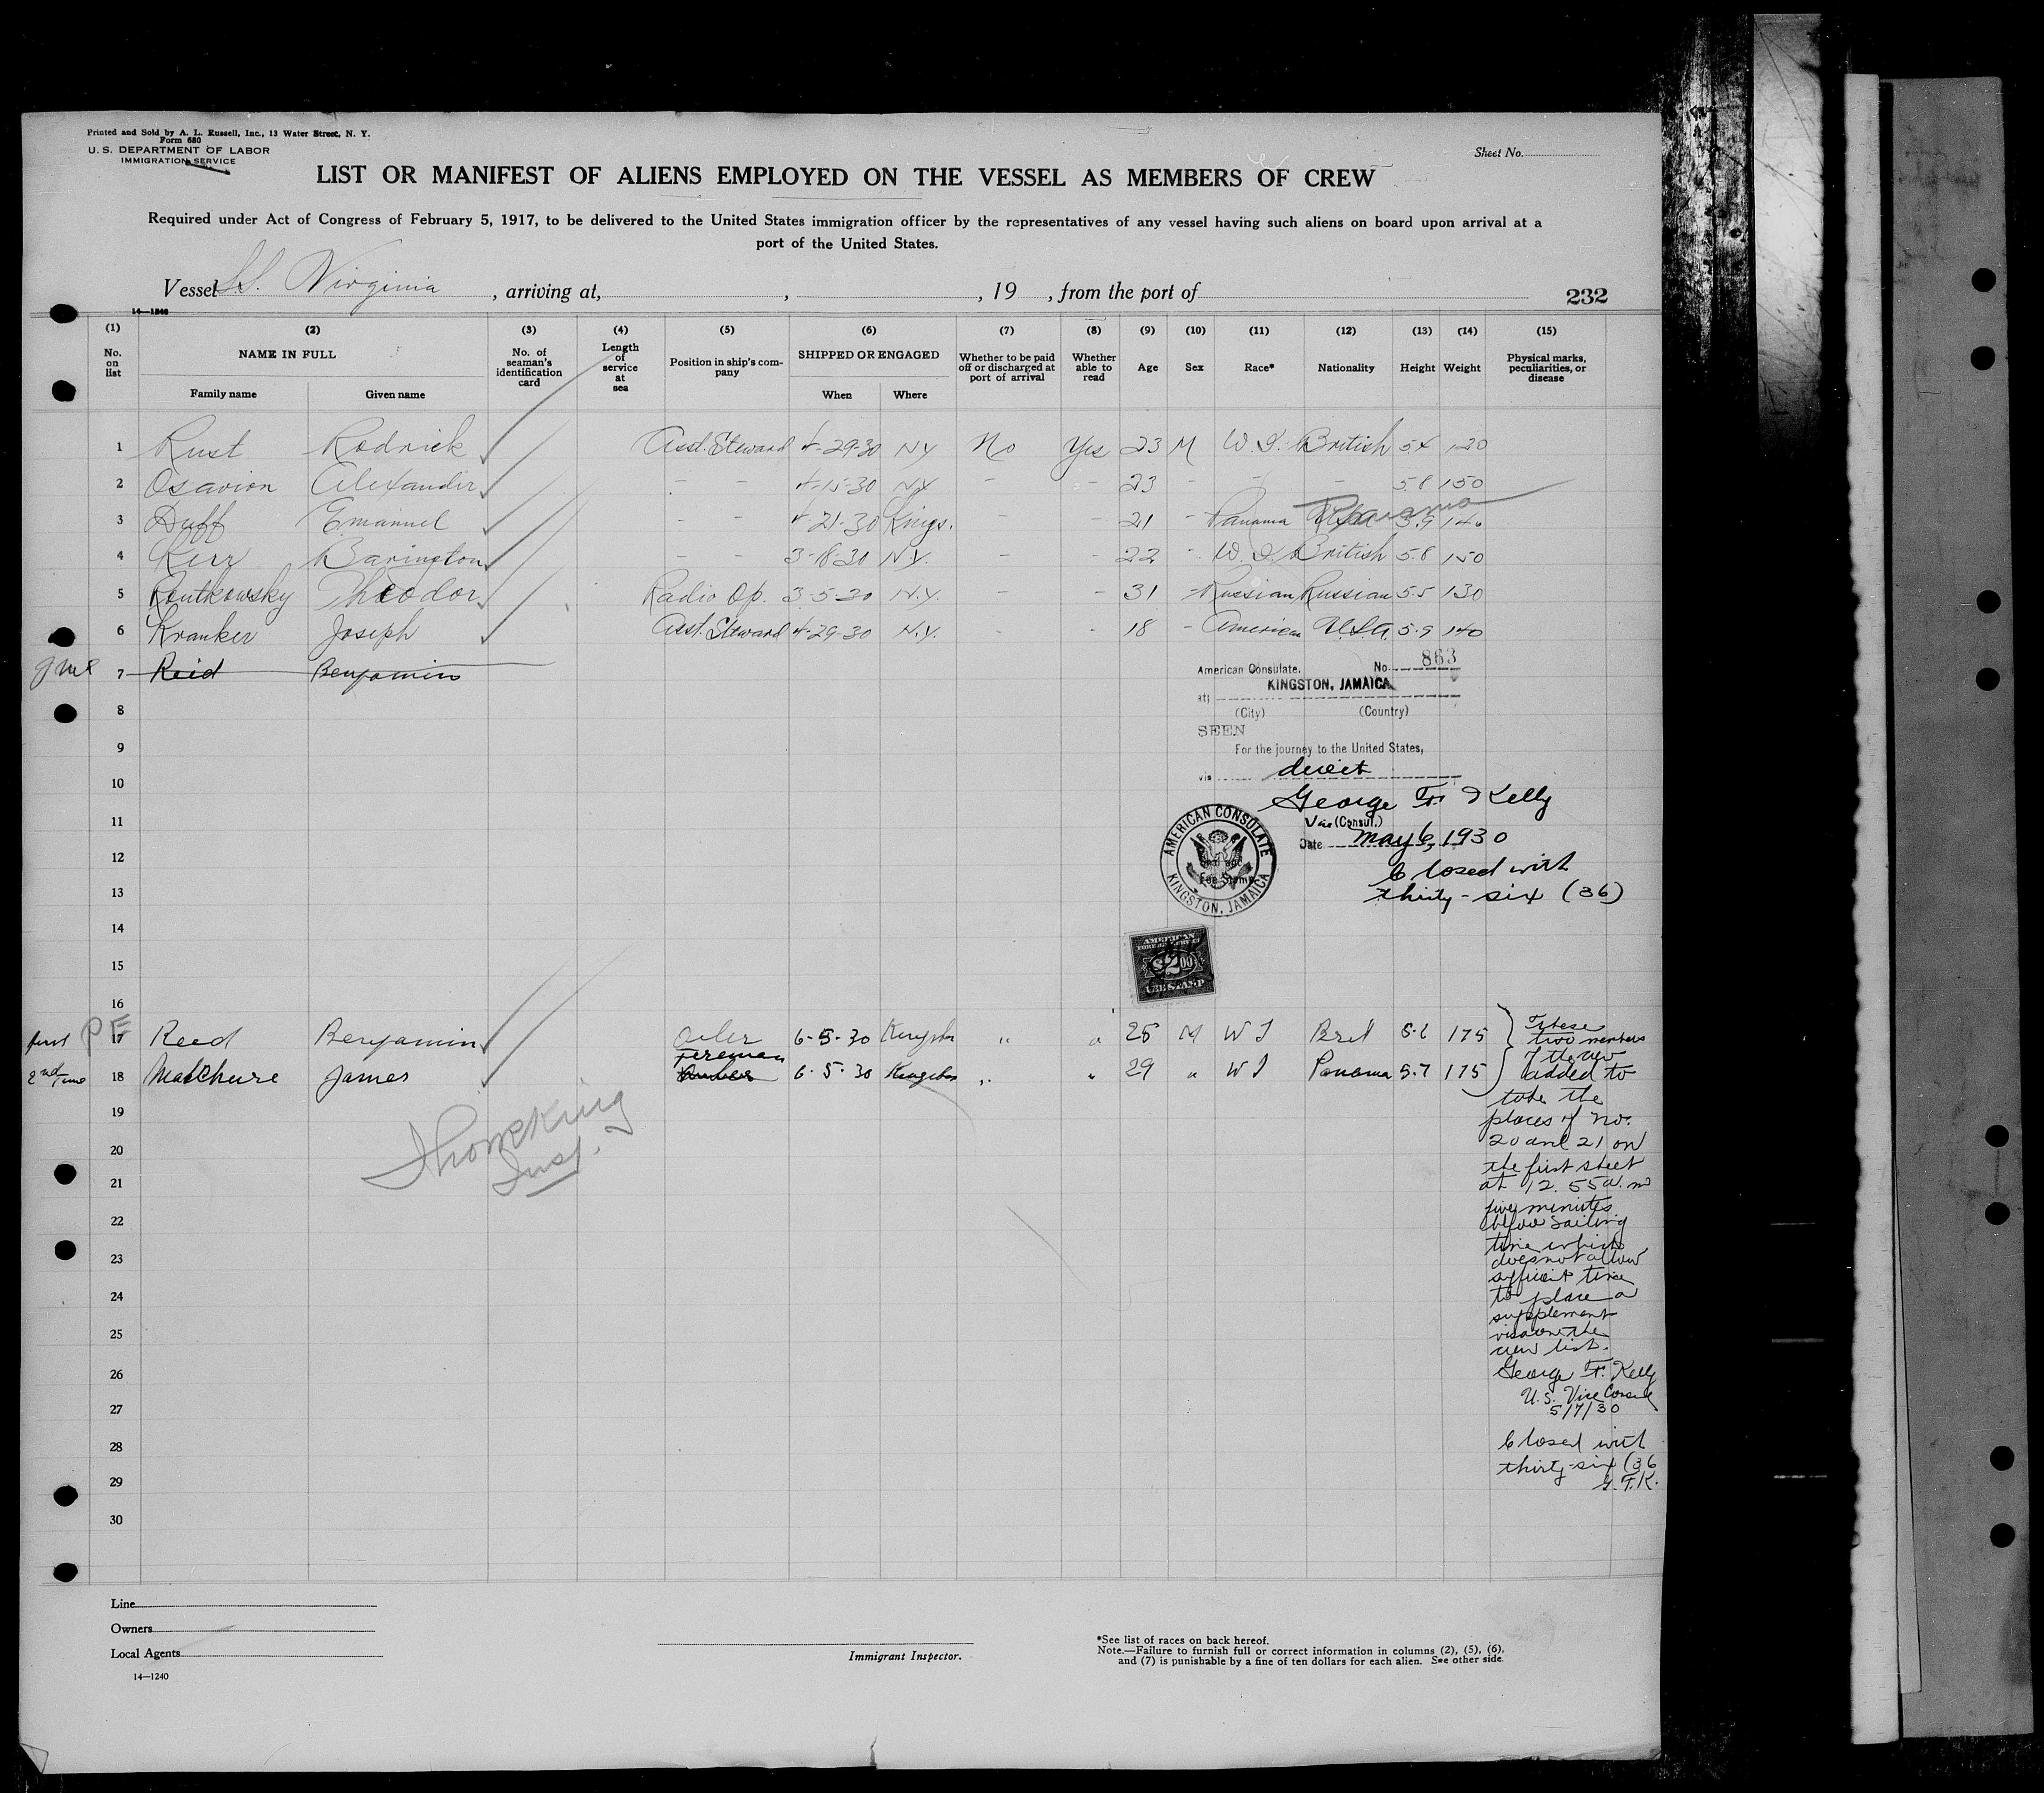 Printed and Sold by A. L. Russell, Inc., 13 Water Street, N. Y.
Form 680
U. S. DEPARTMENT OF LABOR
IMMIGRATION SERVICE
Sheet No.
LIST OR MANIFEST OF ALIENS EMPLOYED ON THE VESSEL AS MEMBERS OF CREW
Required under Act of Congress of February 5, 1917, to be delivered to the United States immigration officer by the representatives of any vessel having such aliens on board upon arrival at a
port of the United States.
Vessel S.S. Virginia, arriving at, , , 19 , from the port of 232
14—1240
(1) (2) (3) (4) (5) (6) (7) (8) (9) (10) (11) (12) (13) (14) (15)
No. on list NAME IN FULL Family name Given name No. of seaman's identification card Length of service at sea Position in ship's company SHIPPED OR ENGAGED When Where Whether to be paid off or discharged at port of arrival Whether able to read Age Sex Race* Nationality Height Weight Physical marks, peculiarities, or disease
1 Rust Rodrick Asst. Steward 4-29-30 NY No Yes 23 M W. I. British 5.4 120
2 Osavion Alexander - - 4-15-30 N.Y. - - 23 - - - 5.8 150
3 Duff Emanuel - - 4-21-30 Kings. - - 21 - Panama Panama 5.9 140
4 Kerr Barington - - 3-18-30 N.Y. - - 22 - W. I. British 5.8 150
5 Theodor Radio Op. 3-5-30 N.Y. - - 31 - Russian Russian 5.5 130
6 Kranker Joseph Asst. Steward 4-29-30 N.Y. - - 18 - American U.S.A. 5.9 140
7 Reid Benjamin
American Consulate. No. 863
KINGSTON, JAMAICA
at;
8
(City) (Country)
SEEN
9
For the journey to the United States,
via direct
10
George F. Kelly
11
Vice (Consul.)
Date May 6, 1930
AMERICAN CONSULATE
KINGSTON, JAMAICA
12
Closed with
13
thirty-six (36)
14
AMERICAN
FOREIGN SERVICE
$2.00
FEE STAMP
15
16
first P E 17 Reed Benjamin Oiler 6-5-30 Kingston " " 25 M W I Brit 5.6 175
2nd time 18 James Fireman 6-5-30 Kingston " " 29 " W I Panama 5.7 175
These
two members
of the crew
added to
take the
places of No.
20 and 21 on
the first sheet
at 12.55 a.m
five minutes
before sailing
time which
does not allow
sufficient time
to place a
supplement
visa on the
crew list.
George F. Kelly
U.S. Vice Consul
5/7/30
Closed with
thirty-six (36
G.F.K.
19
20
Insp.
21
22
23
24
25
26
27
28
29
30
Line
Owners
Local Agents
14—1240
Immigrant Inspector.
*See list of races on back hereof.
Note.—Failure to furnish full or correct information in columns (2), (5), (6),
and (7) is punishable by a fine of ten dollars for each alien. See other side.